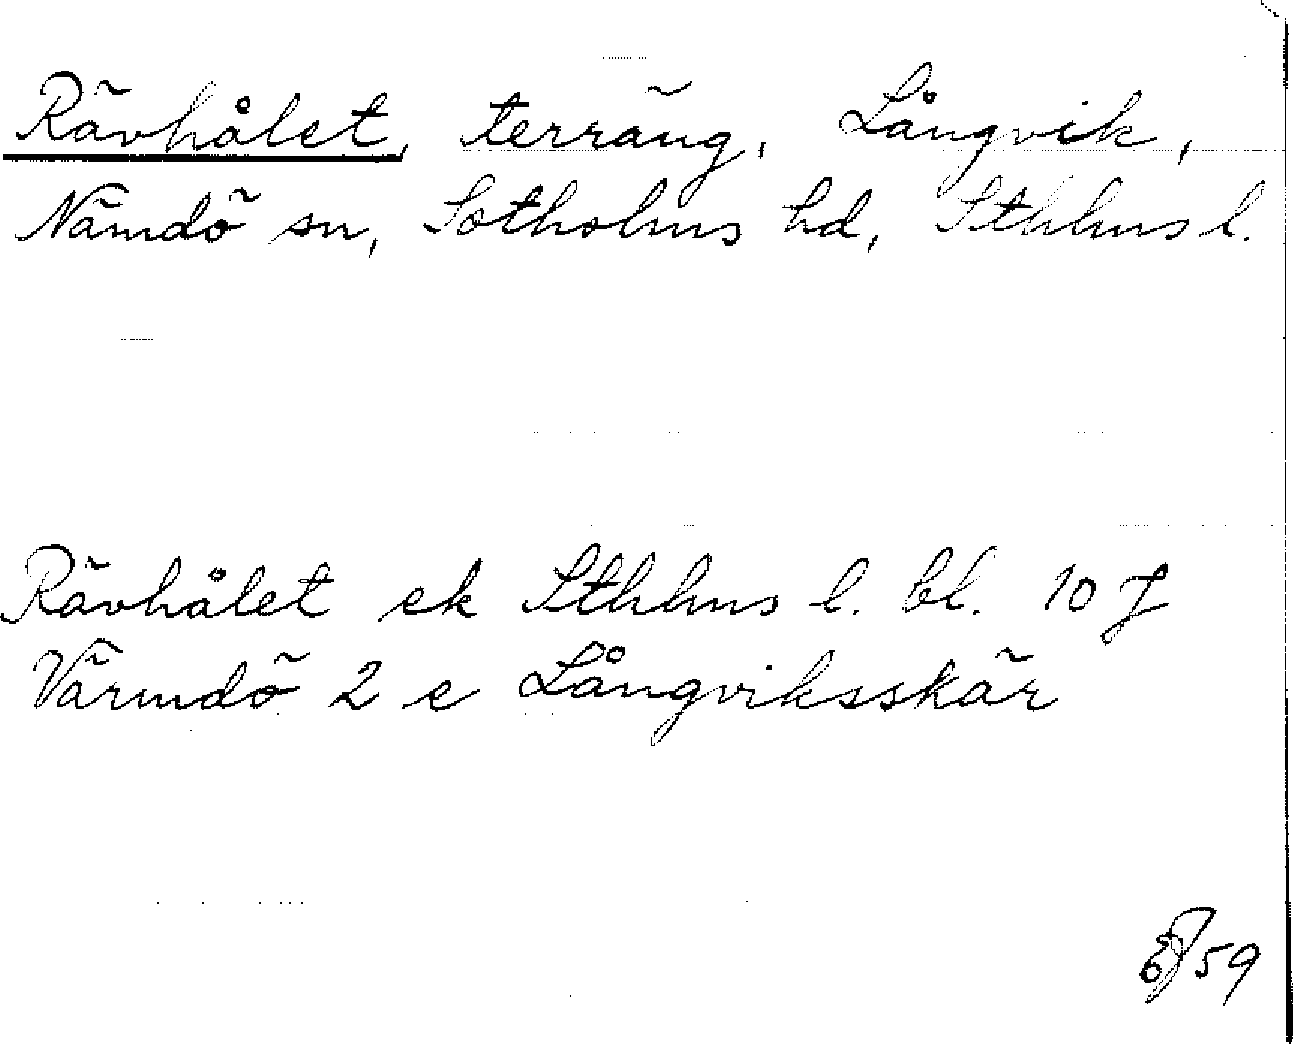 Rävhålet, terräng, Långvik,
Nämdö sn, Sotholms hd, Sthlms l.
Rävhålet ek Sthlms l. bl. 10 J
Värmdö 2 e Långviksskär
59